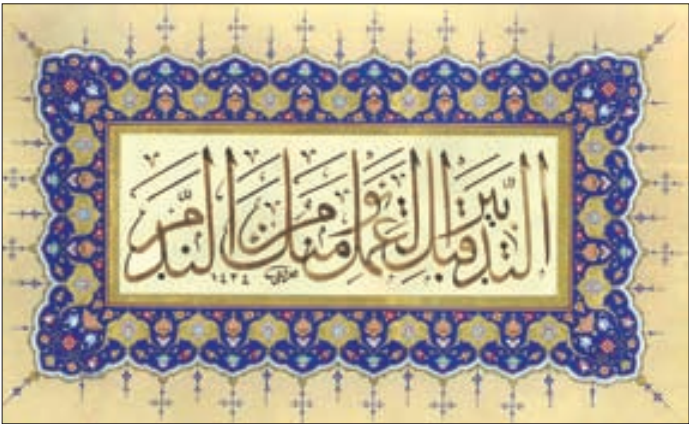 التدبير قبل العمل يؤمنك من الندم
١٤٢٤